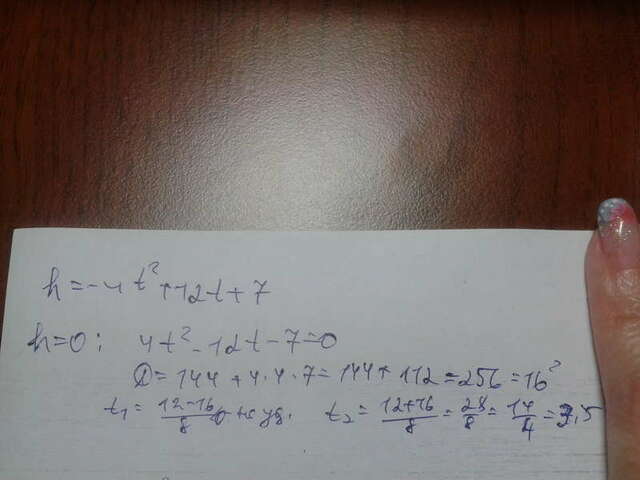 h=-4t²+12t+7
h=0: 4t²-12t-7=0
D=144+4·4·7=144+112=256=16²
t₁=(12-16)/8 не уд. t₂=(12+16)/8=28/8=14/4=3,5